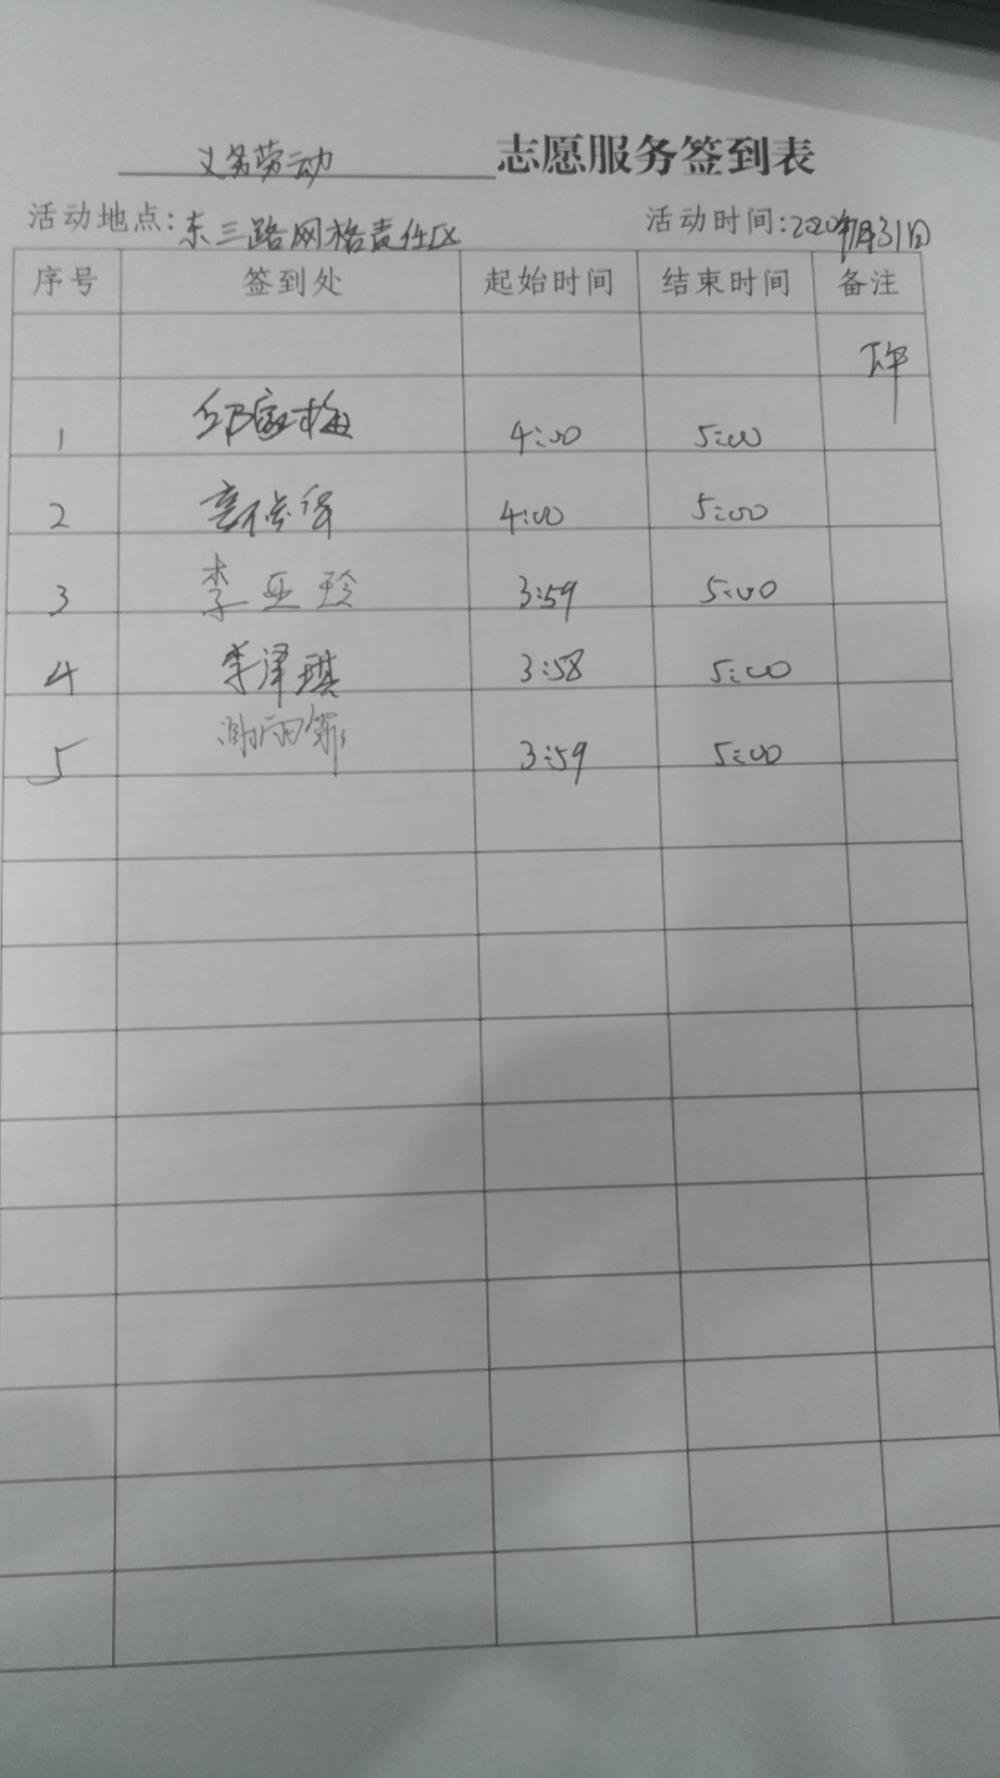 义务劳动 志愿服务签到表
活动地点:东三路网格责任区 活动时间:2020年7月31日
序号 签到处 起始时间 结束时间 备注
下午
1 邱家梅 4:00 5:00
2 4:00 5:00
3 李亚玲 3:59 5:00
4 李泽琪 3:58 5:00
5 3:59 5:00